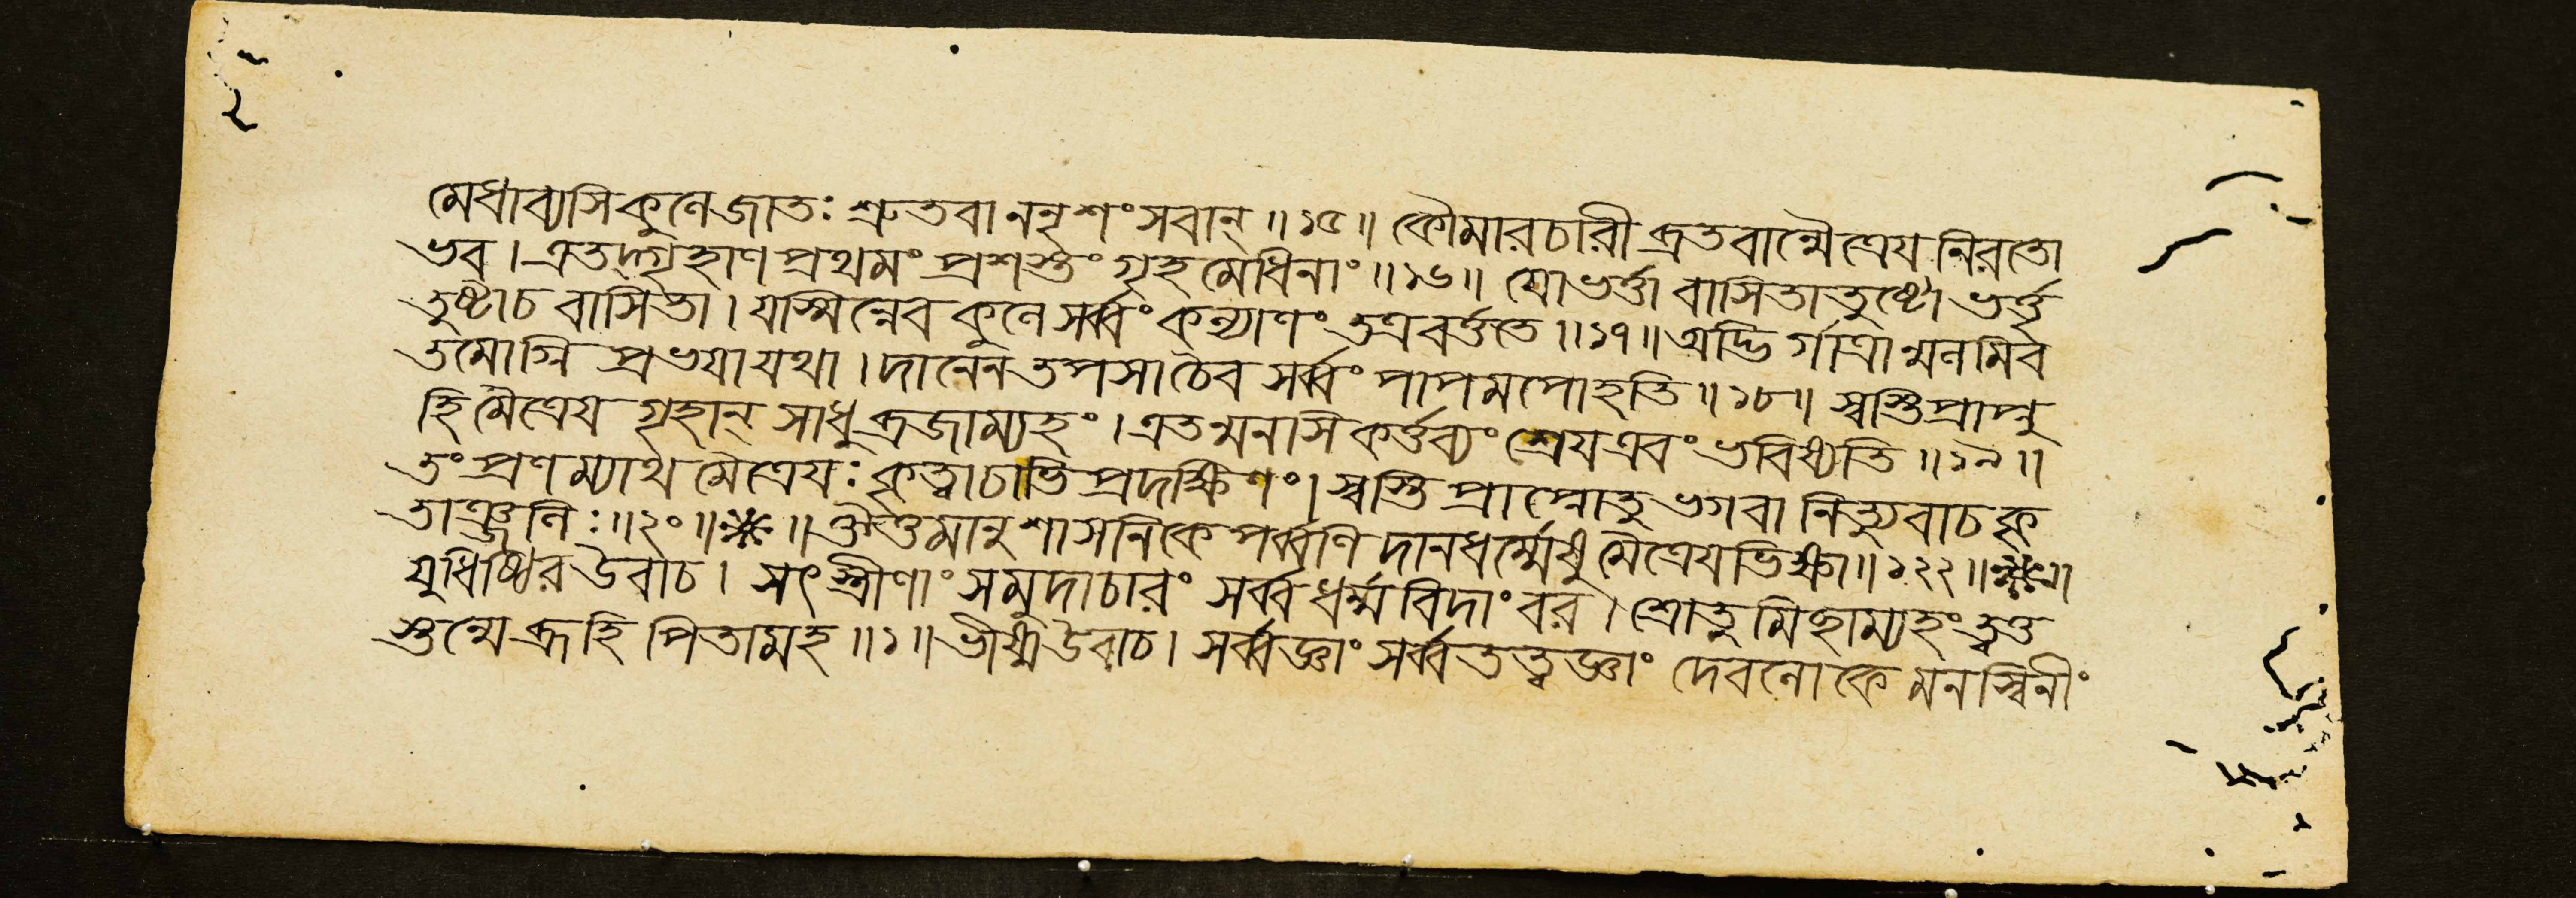 মেধাব্যসি কুলে জাতঃ শ্রুতবাননৃশংসবান্ ॥ ১৫ ॥ কৌমারচারী ব্রতবান্মৈত্রেয নিরতো
ভব । এতদ্গৃহাণ প্রথমং প্রশস্তং গৃহমেধিনাং ॥ ১৬ ॥ যো ভর্ত্তা বাসিতাতুষ্টো ভর্ত্তৃ
তুষ্টা চ বাসিতা । যস্মিন্নেব কুলে সর্ব্বং কল্যাণং তত্র বর্ত্ততে ॥ ১৭ ॥ অদ্ভির্গাত্রান্মলমিব
তমোগ্নিপ্রভযা যথা । দানেন তপসা চৈব সর্ব্বং পাপমপোহতি ॥ ১৮ ॥ স্বস্তি প্রাপ্নু
হি মৈত্রেয গৃহান্ সাধু ব্রজাম্যহং । এতন্মনসি কর্ত্তব্যং শ্রেয এবং ভবিষ্যতি ॥ ১৯ ॥
তং প্রণম্যাথ মৈত্রেযঃ কৃত্বা চাভিপ্রদক্ষিণং । স্বস্তি প্রাপ্নোতু ভগবানিত্যুবাচ কৃ
তাঞ্জলিঃ ॥ ২০ ॥ ❋ ॥ ঔত্তমানুশাসনিকে পর্ব্বণি দানধর্ম্মেষু মৈত্রেযভিক্ষা ॥ ১২২ ॥ ❋ ॥
যুধিষ্ঠির উবাচ । সৎস্ত্রীণাং সমুদাচারং সর্ব্বধর্ম্মবিদাং বর । শ্রোতুমিচ্ছাম্যহং ত্বত্ত
স্তন্মে ব্রূহি পিতামহ ॥ ১ ॥ ভীষ্ম উবাচ । সর্ব্বজ্ঞাং সর্ব্বতত্ত্বজ্ঞাং দেবলোকে মনস্বিনীং